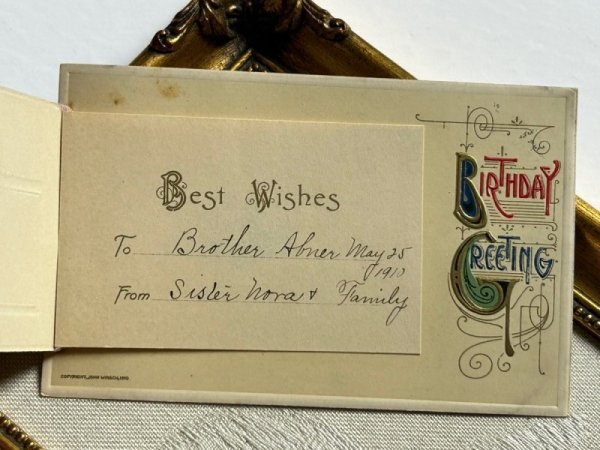 Best Wishes
To Brother Abner May 25
1910
From Sister Nora & Family
BIRTHDAY
GREETING
COPYRIGHT, JOHN WINSCH, 1910